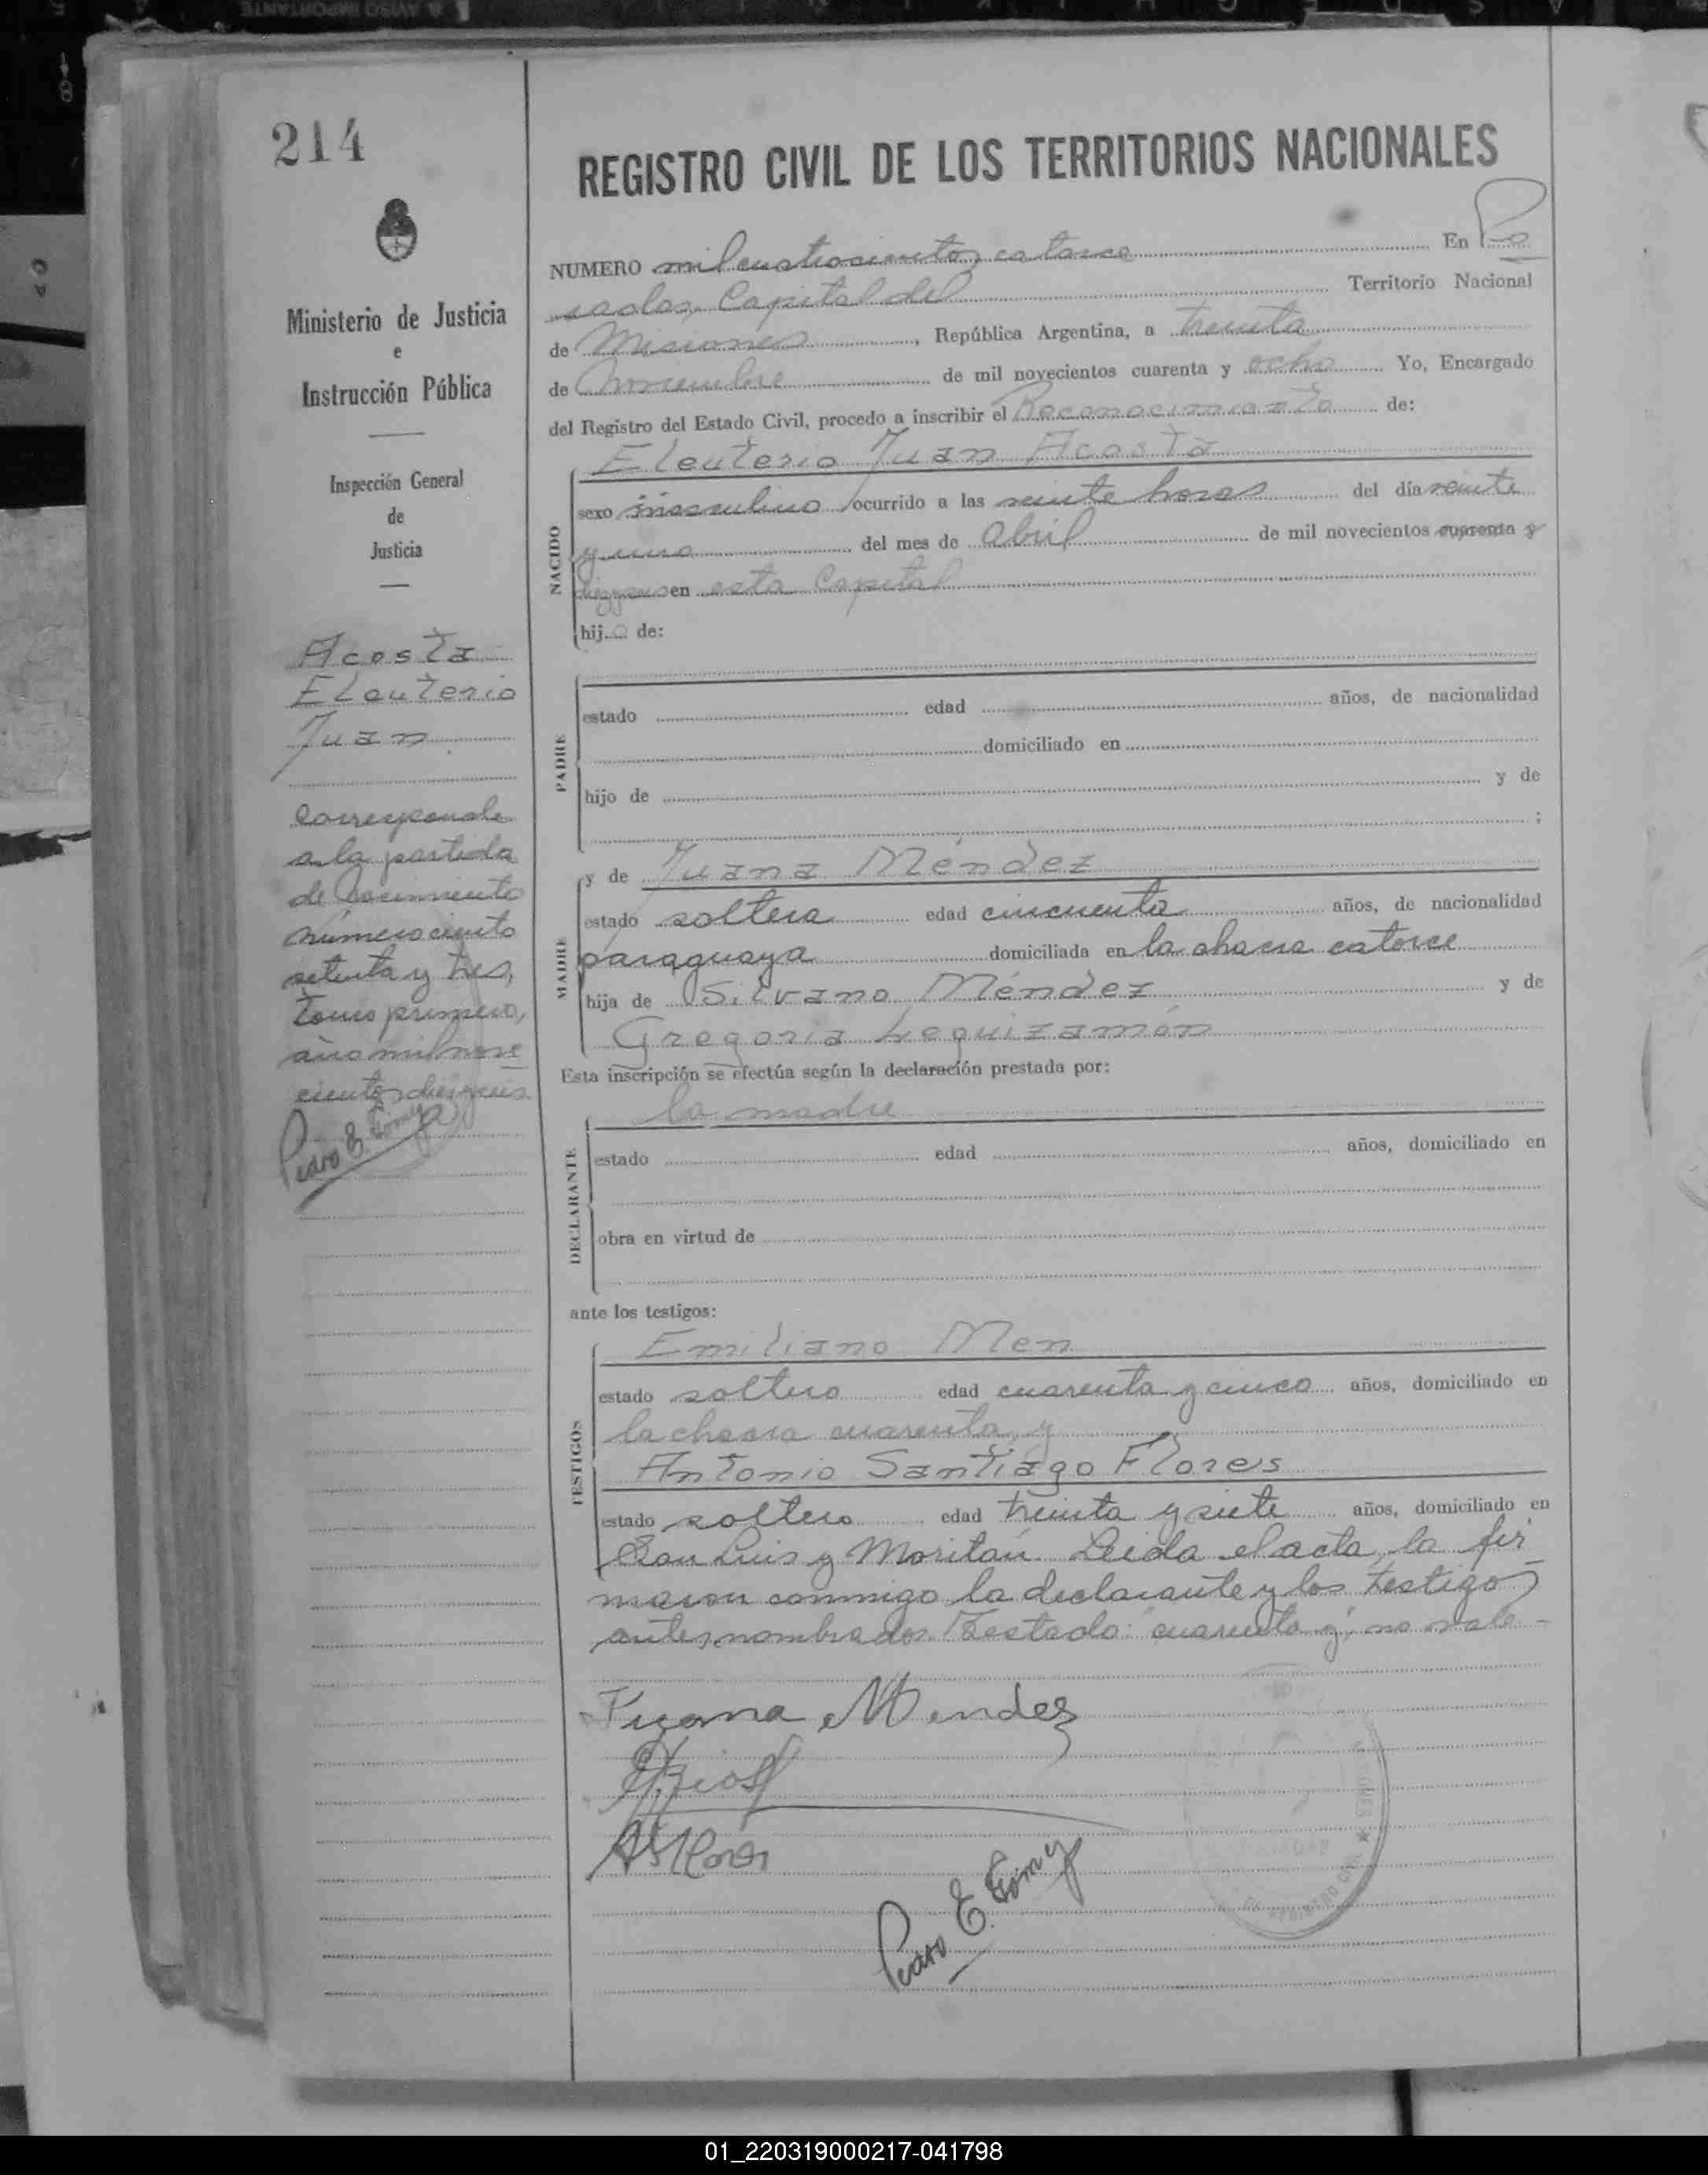 214
REGISTRO CIVIL DE LOS TERRITORIOS NACIONALES
Ministerio de Justicia
e
Instrucción Pública
Inspección General
de
Justicia
Acosta
Eleuterio
Juan
Corresponde
a la partida
de Nacimiento
número ciento
setenta y tres,
tomo primero,
año mil nove
cientos dieciseis.
Pedro E. Gómez
NUMERO mil cuatrocientos catorce En Po
sadas, Capital del Territorio Nacional
de Misiones, República Argentina, a treinta
de Noviembre de mil novecientos cuarenta y ocho Yo, Encargado
del Registro del Estado Civil, procedo a inscribir el Reconocimiento de:
Eleuterio Juan Acosta
NACIDO
sexo masculino ocurrido a las veinte horas del día veinte
y uno del mes de abril de mil novecientos cuarenta y
en esta Capital
hijo de:
PADRE
estado edad años, de nacionalidad
domiciliado en
hijo de y de
;
MADRE
y de Juana Méndez
estado soltera edad cincuenta años, de nacionalidad
paraguaya domiciliada en la chacra catorce
hija de Silvano Méndez y de
Gregoria Leguizamón
Esta inscripción se efectúa según la declaración prestada por:
la madre
DECLARANTE
estado edad años, domiciliado en
obra en virtud de
ante los testigos:
TESTIGOS
Emiliano Men
estado soltero edad cuarenta y cinco años, domiciliado en
la chacra cuarenta, y
Antonio Santiago Flores
estado soltero edad treinta y siete años, domiciliado en
San Luis y Moritán. Leida el acta, la fir
maron conmigo la declarante y los testigos
antes nombrados. Testado: "cuarenta y", no vale -
Juana Mendez
Pedro E. Gómez
01_220319000217-041798